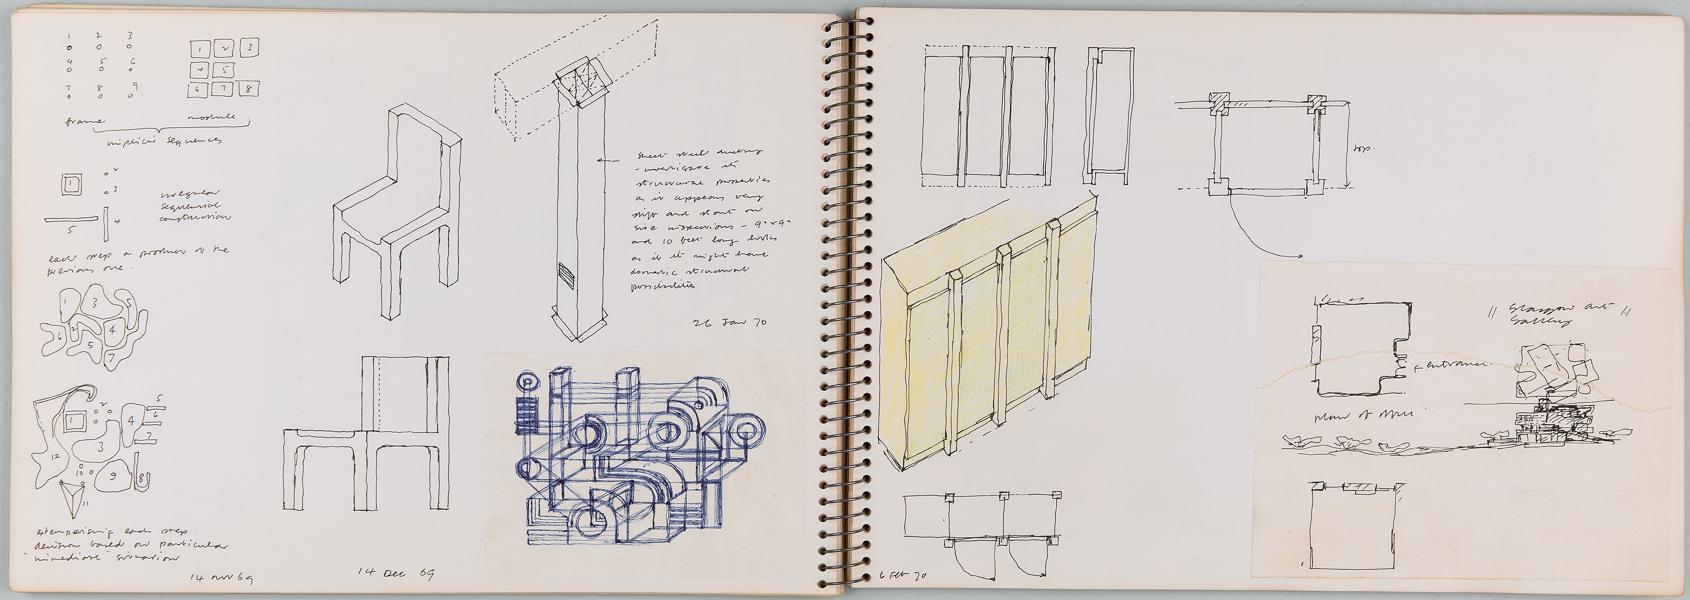 1 2 3
4 5 6
7 8 9
1 2 3
4 5
6 7 8
frame module
implicit sequences
1
2
3
4
5
irregular
sequential
construction
each step a product of the
previous one.
1 3 5
6 2 4
5
7
1 2 4 5
6
3 7
12
10 9 8
11
extemporising each step
decision based on particular
"immediate" situation
14 Nov 69
14 Dec 69
sheet steel ducting
- investigate its
structural properties
as it appears very
stiff and stout on
size inspections - 9" x 9"
and 10 feet long looks
as if it might have
domestic structural
possibilities
26 Jan 70
6 Feb 70
top.
entrance.
plan of
" Glasgow art "
Gallery